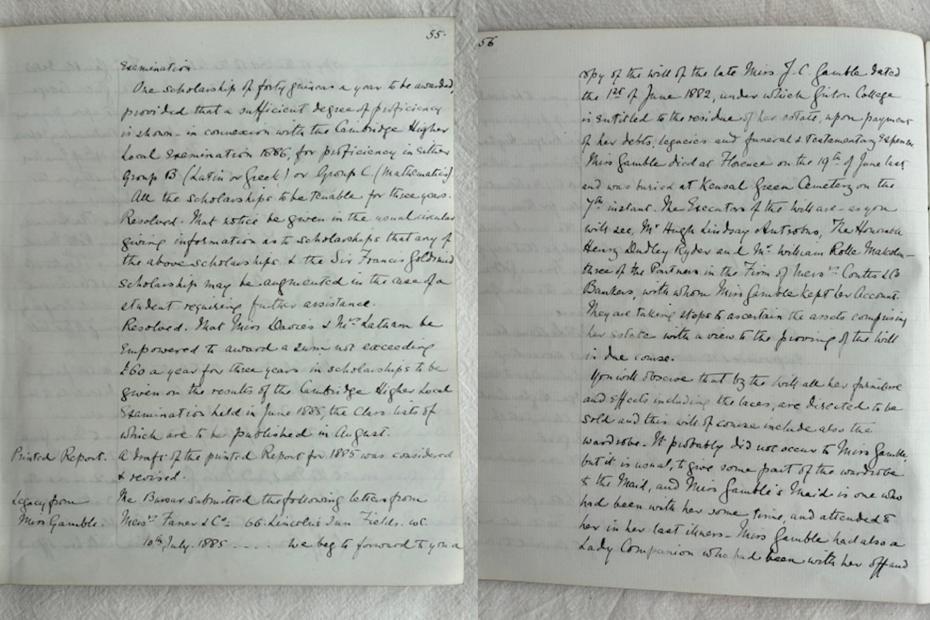 55.
Examination.
One scholarship of forty guineas a year to be awarded,
provided that a sufficient degree of proficiency
is shown - in connexion with the Cambridge Higher
Local Examination 1886, for proficiency in either
Group B (Latin or Greek) or Group C (Mathematics)
All the scholarships to be tenable for three years.
Resolved. That notice be given in the usual circular
giving information as to scholarships that any of
the above scholarships & the Sir Francis Goldsmid
scholarship may be augmented in the case of a
student requiring further assistance.
Resolved. That Miss Davies & Mrs Latham be
empowered to award a sum not exceeding
£60 a year for three years in scholarships to be
given on the results of the Cambridge Higher Local
Examination held in June 1885, the Class lists of
which are to be published in August.
Printed Report. A draft of the printed Report for 1885 was considered
& revised.
Legacy from The Bursar submitted the following letter from
Miss Gamble. Messrs & Co 66 Lincoln's Inn Fields. W.C.
10th July. 1885 - - - - We beg to forward to you a
56
copy of the will of the late Miss J. C. Gamble dated
the 1st of June 1882, under which Girton College
is entitled to the residue of her estate, upon payment
of her debts, legacies and funeral & Testamentary Expenses
Miss Gamble died at Florence on the 19th of June last
and was buried at Kensal Green Cemetery on the
7th instant. The Executors of the will are - as you
will see, Mr Hugh Lindsay Antrobus, The Honorable
Henry Dudley Ryder and Mr William Rolle Malcolm -
three of the Partners in the Firm of Messrs Coutts & Co
Bankers, with whom Miss Gamble kept her Account.
They are taking steps to ascertain the assets comprising
her estate with a view to the proving of the will
in due course.
You will observe that by the will all her furniture
and effects including the laces, are directed to be
sold and this will of course include also the
wardrobe. It probably did not occur to Miss Gamble,
but it is usual, to give some part of the wardrobe
to the Maid, and Miss Gamble's Maid is one who
had been with her some time, and attended to
her in her last illness - Miss Gamble had also a
Lady Companion who had been with her off and